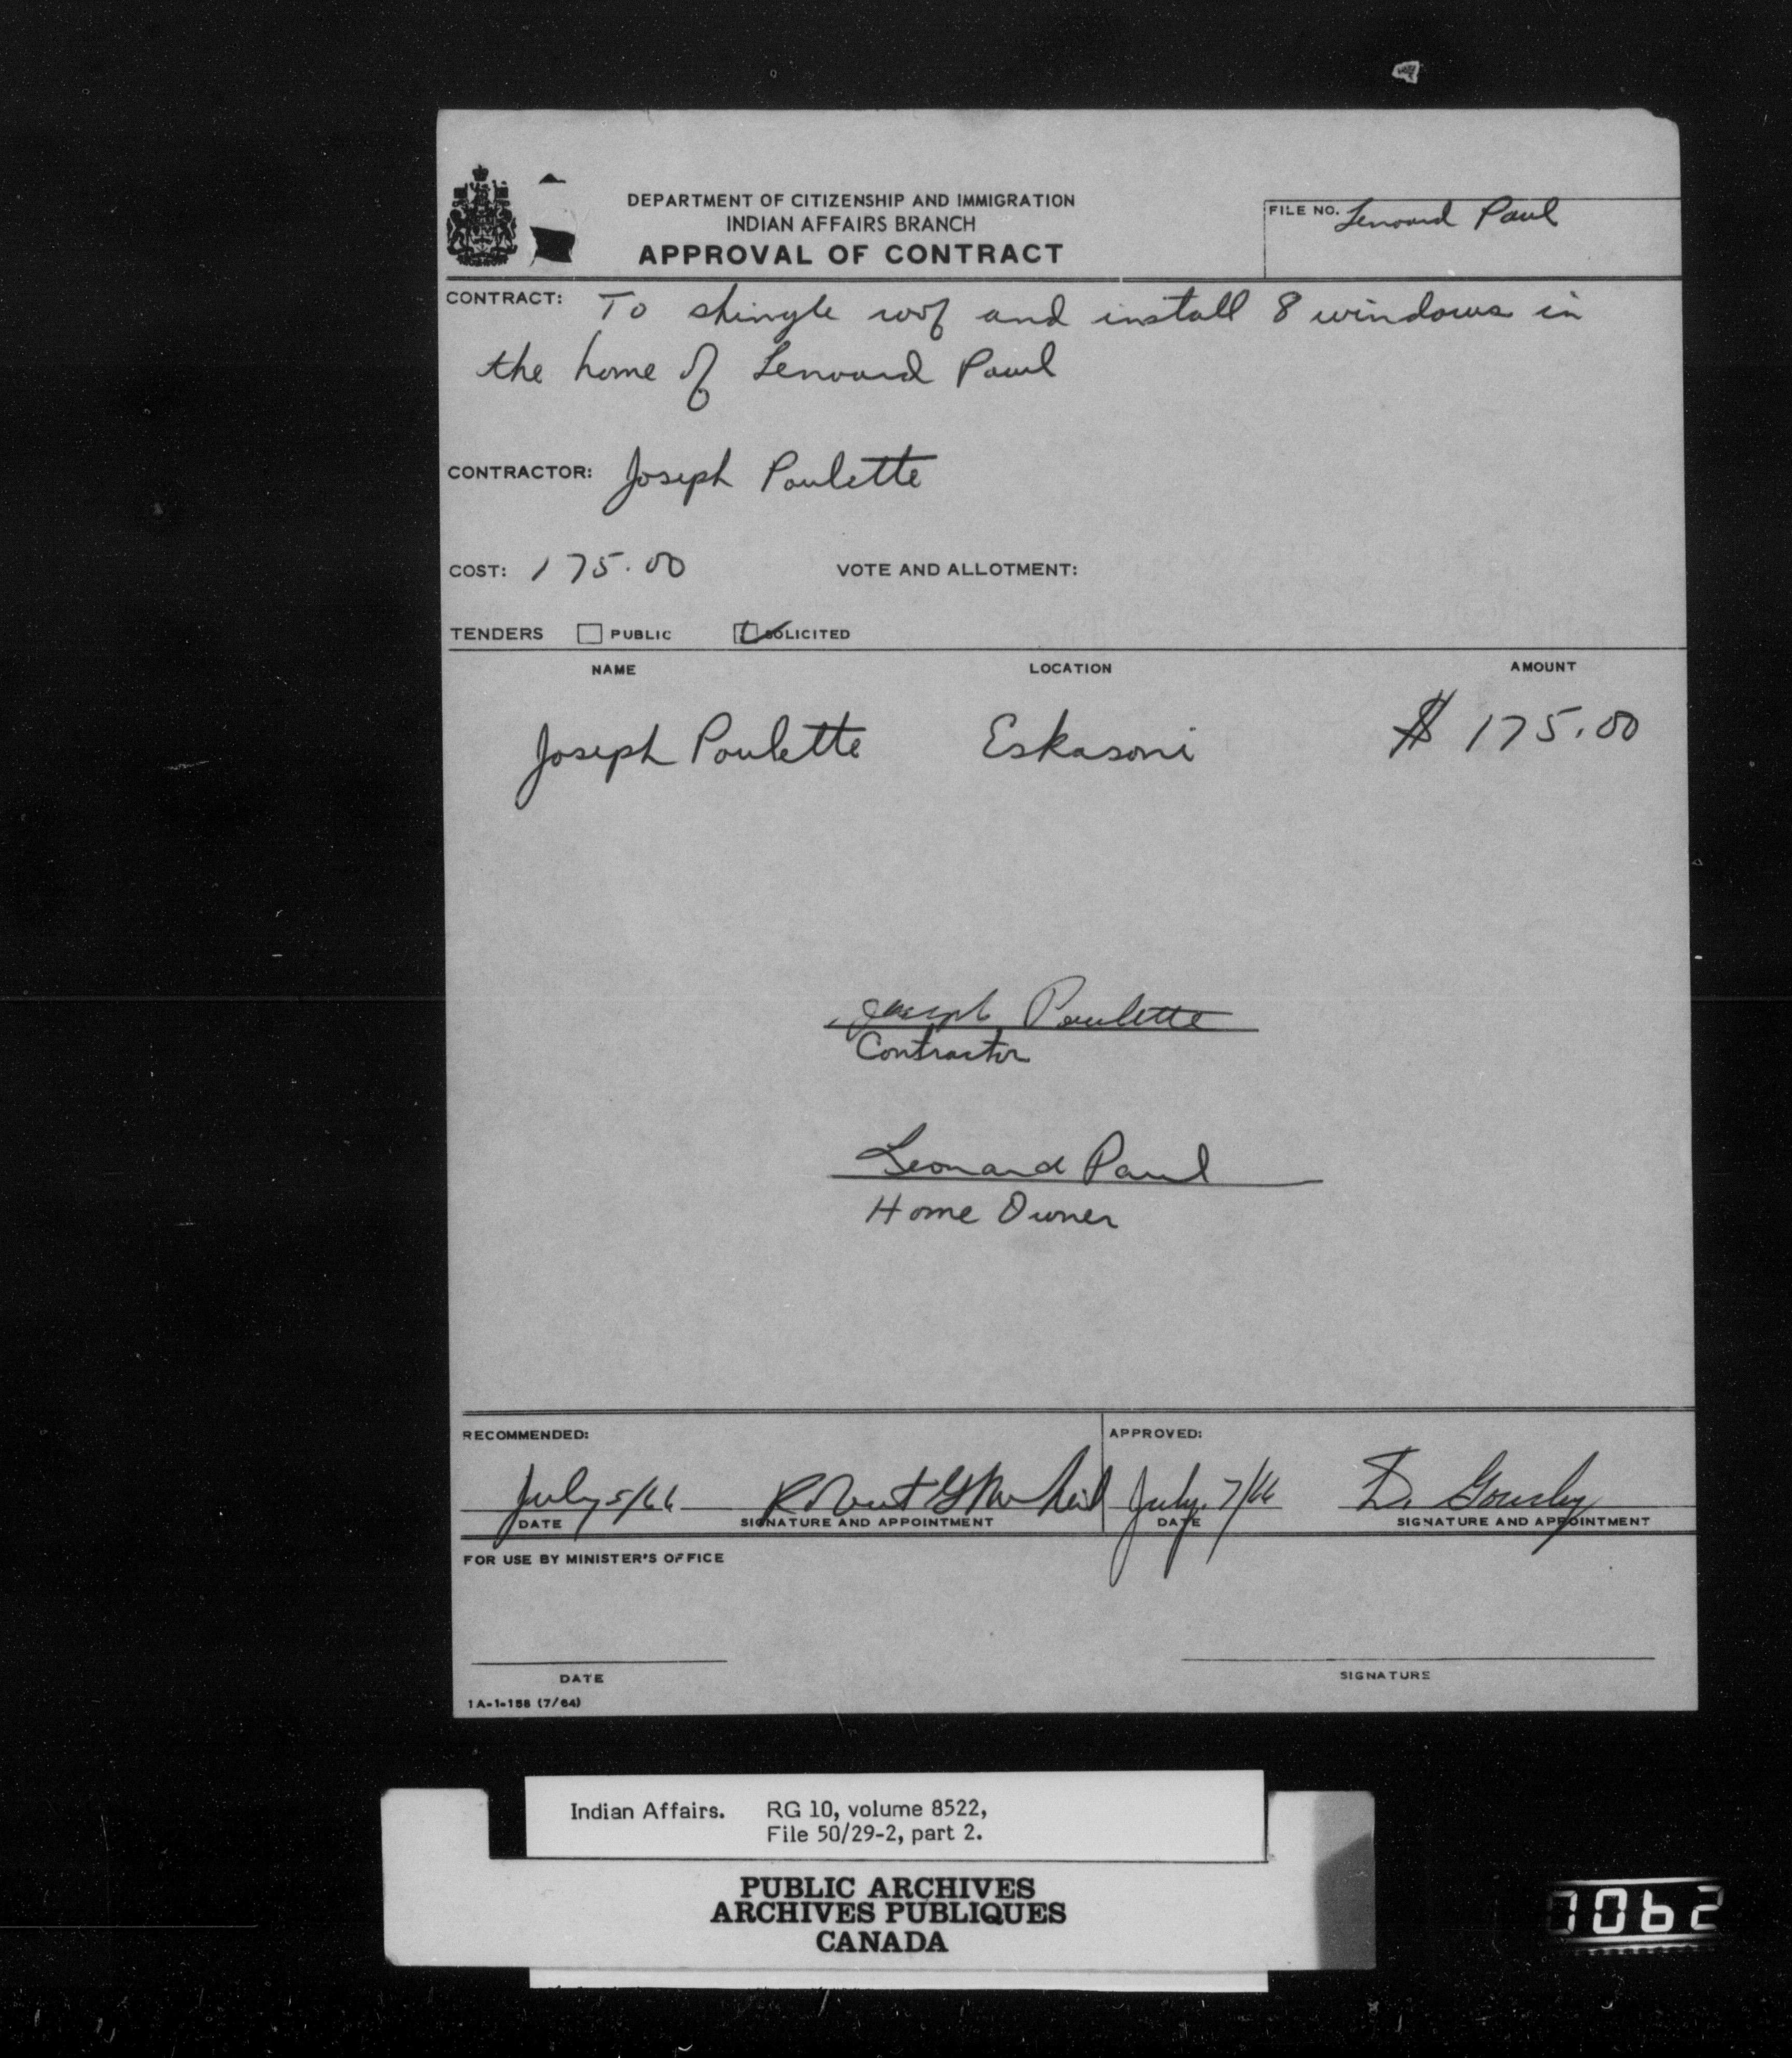 DEPARTMENT OF CITIZENSHIP AND IMMIGRATION
INDIAN AFFAIRS BRANCH
APPROVAL OF CONTRACT
FILE NO. Lenoard Paul
CONTRACT: To shingle roof and install 8 windows in
the home of Lenoard Paul
CONTRACTOR: Joseph Poulette
COST: 175.00 VOTE AND ALLOTMENT:
TENDERS PUBLIC SOLICITED
NAME LOCATION AMOUNT
Joseph Poulette Eskasoni $ 175.00
Joseph Poulette
Contractor
Leonard Paul
Home Owner
RECOMMENDED: APPROVED:
July 5/66 Robert July. 7/66 D.
DATE SIGNATURE AND APPOINTMENT DATE SIGNATURE AND APPOINTMENT
FOR USE BY MINISTER'S OFFICE
DATE SIGNATURE
1A-1-158 (7/64)
Indian Affairs. RG 10, volume 8522,
File 50/29-2, part 2.
PUBLIC ARCHIVES
ARCHIVES PUBLIQUES
CANADA
1062